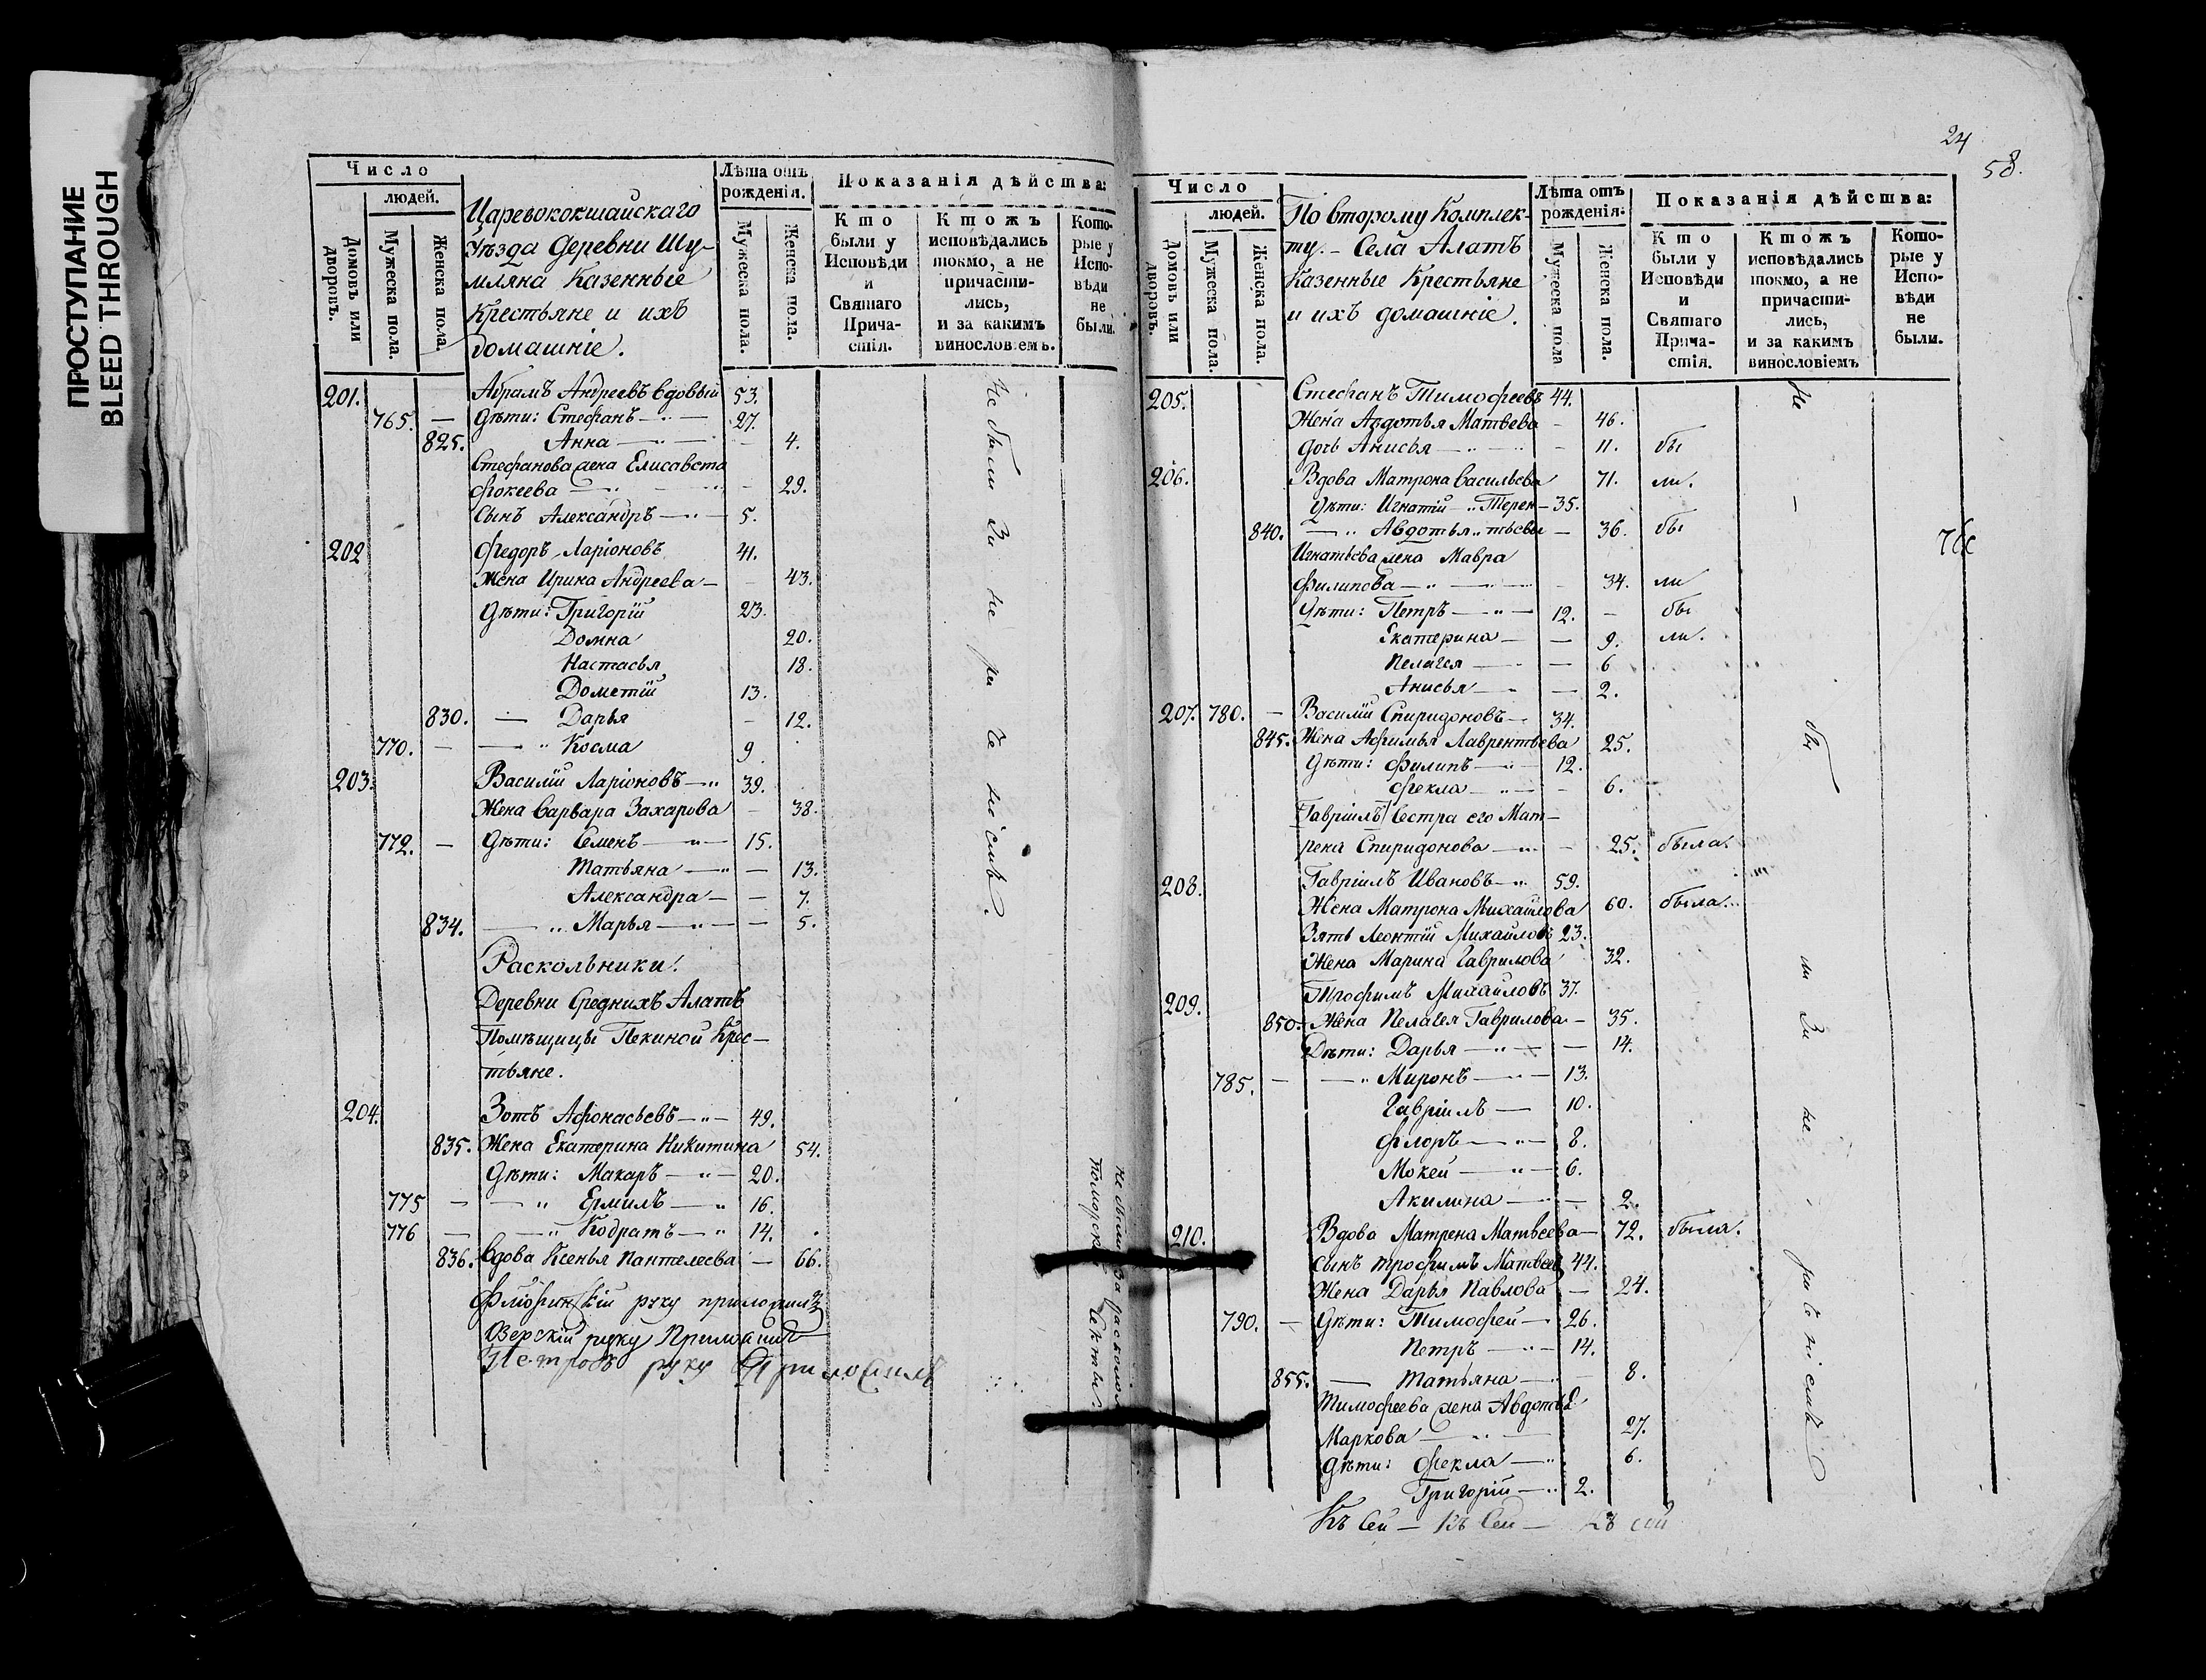 ПРОСТУПАНИЕ
BLEED THROUGH
Число
людей.
Домовъ или дворовъ.
Мужеска пола.
Женска пола.
Царевококшайскаго
Уѣзда деревни Шу-
мляна Казенные
Крестьяне и ихъ
домашніе.
Лѣта отъ рожденія.
Мужеска пола.
Женска пола.
Показанія дѣйства:
Кто были у Исповѣди и Святаго Причастія.
Ктожъ исповѣдались токмо, а не причастились, и за какимъ винословіемъ.
Которые у Исповѣди не были.
201. Абрамъ Андреевъ вдовый 53.
765. — Дѣти: Стефанъ — 27.
825. Анна — 4.
Стефанова жена Елисавета
Фокеева — 29.
Сынъ Александръ — 5.
202 Федоръ Ларіоновъ 41.
Жена Ирина Андреева — 43.
Дѣти: Григорій 23.
Домна 20.
Настасья 18.
Дометій 13.
830. — Дарья — 12.
770. — — Косма 9.
203. Василій Ларіоновъ — 39.
Жена Варвара Захарова — 38.
772. — Дѣти: Семенъ — 15.
Татьяна — 13.
Александра — 7.
834. — Марья — 5.
Не были За не ра че ніемъ.
Раскольники.
Деревни Среднихъ Алатъ
Помѣщицы Пекиной Крес-
тьяне.
204. Зотъ Афонасьевъ — 49.
835. Жена Екатерина Никитина 54.
Дѣти: Макаръ — 20.
775 — — Ермилъ — 16.
776 — — Кодратъ — 14.
836. Вдова Ксенья Пантелеева — 66.
не были За расколом
поморской секты.
руку приложилъ
Озерскій руку Приложилъ
Петровъ руку Приложилъ
24
58.
Число
людей.
Домовъ или дворовъ.
Мужеска пола.
Женска пола.
По второму Комплек-
ту. — Села Алатъ
Казенные Крестьяне
и ихъ домашніе.
Лѣта отъ рожденія:
Мужеска пола
Женска пола.
Показанія дѣйства:
Кто были у Исповѣди и Святаго Причастія.
Ктожъ исповѣдались токмо, а не причастились, и за какимъ винословіемъ
Которые у Исповѣди не были.
205. Стефанъ Тимофеевъ 44.
Жена Авдотья Матвева — 46.
дочь Анисья — 11. бы
206. Вдова Матрона Васильева 71. ли.
Дѣти: Игнатій Терен — 35.
840. — Авдотья тьевы — 36. бы
Игнатьева жена Мавра
Филипова — 34. ли
Дѣти: Петръ — 12. — бы
Екатерина — 9. ли.
Пелагея — 6
Анисья — 2.
207. 780. — Василій Спиридоновъ — 34.
845. Жена Афимья Лаврентьева 25.
Дѣти: Филипъ — 12.
Фекла — 6.
Гавріилъ Сестра его Мат-
рена Спиридонова — 25. была.
208. Гавріилъ Ивановъ 59.
Жена Матрона Михайлова 60. была.
Зять Леонтій Михайловъ 23.
Жена Марина Гаврилова 32.
209. Трофимъ Михайловъ 37.
850. Жена Пелагея Гаврилова — 35.
Дѣти: Дарья — 14.
785. — — Миронъ — 13.
Гавріилъ — 10.
Флоръ — 8.
Мокей — 6.
Акилина — 2.
210. Вдова Матрена Матвеева — 72. была.
Сынъ Трофимъ Матвеев 44.
Жена Дарья Павлова — 24.
790. — Дѣти: Тимофей — 26.
Петръ — 14.
855. — Татьяна — 8.
Тимофеева жена Авдотья
Маркова — 27.
Дѣти: Фекла — 6.
Григорій — 2.
Не бы ли За не ра че ніемъ
Къ сей — Къ сей — Къ сей